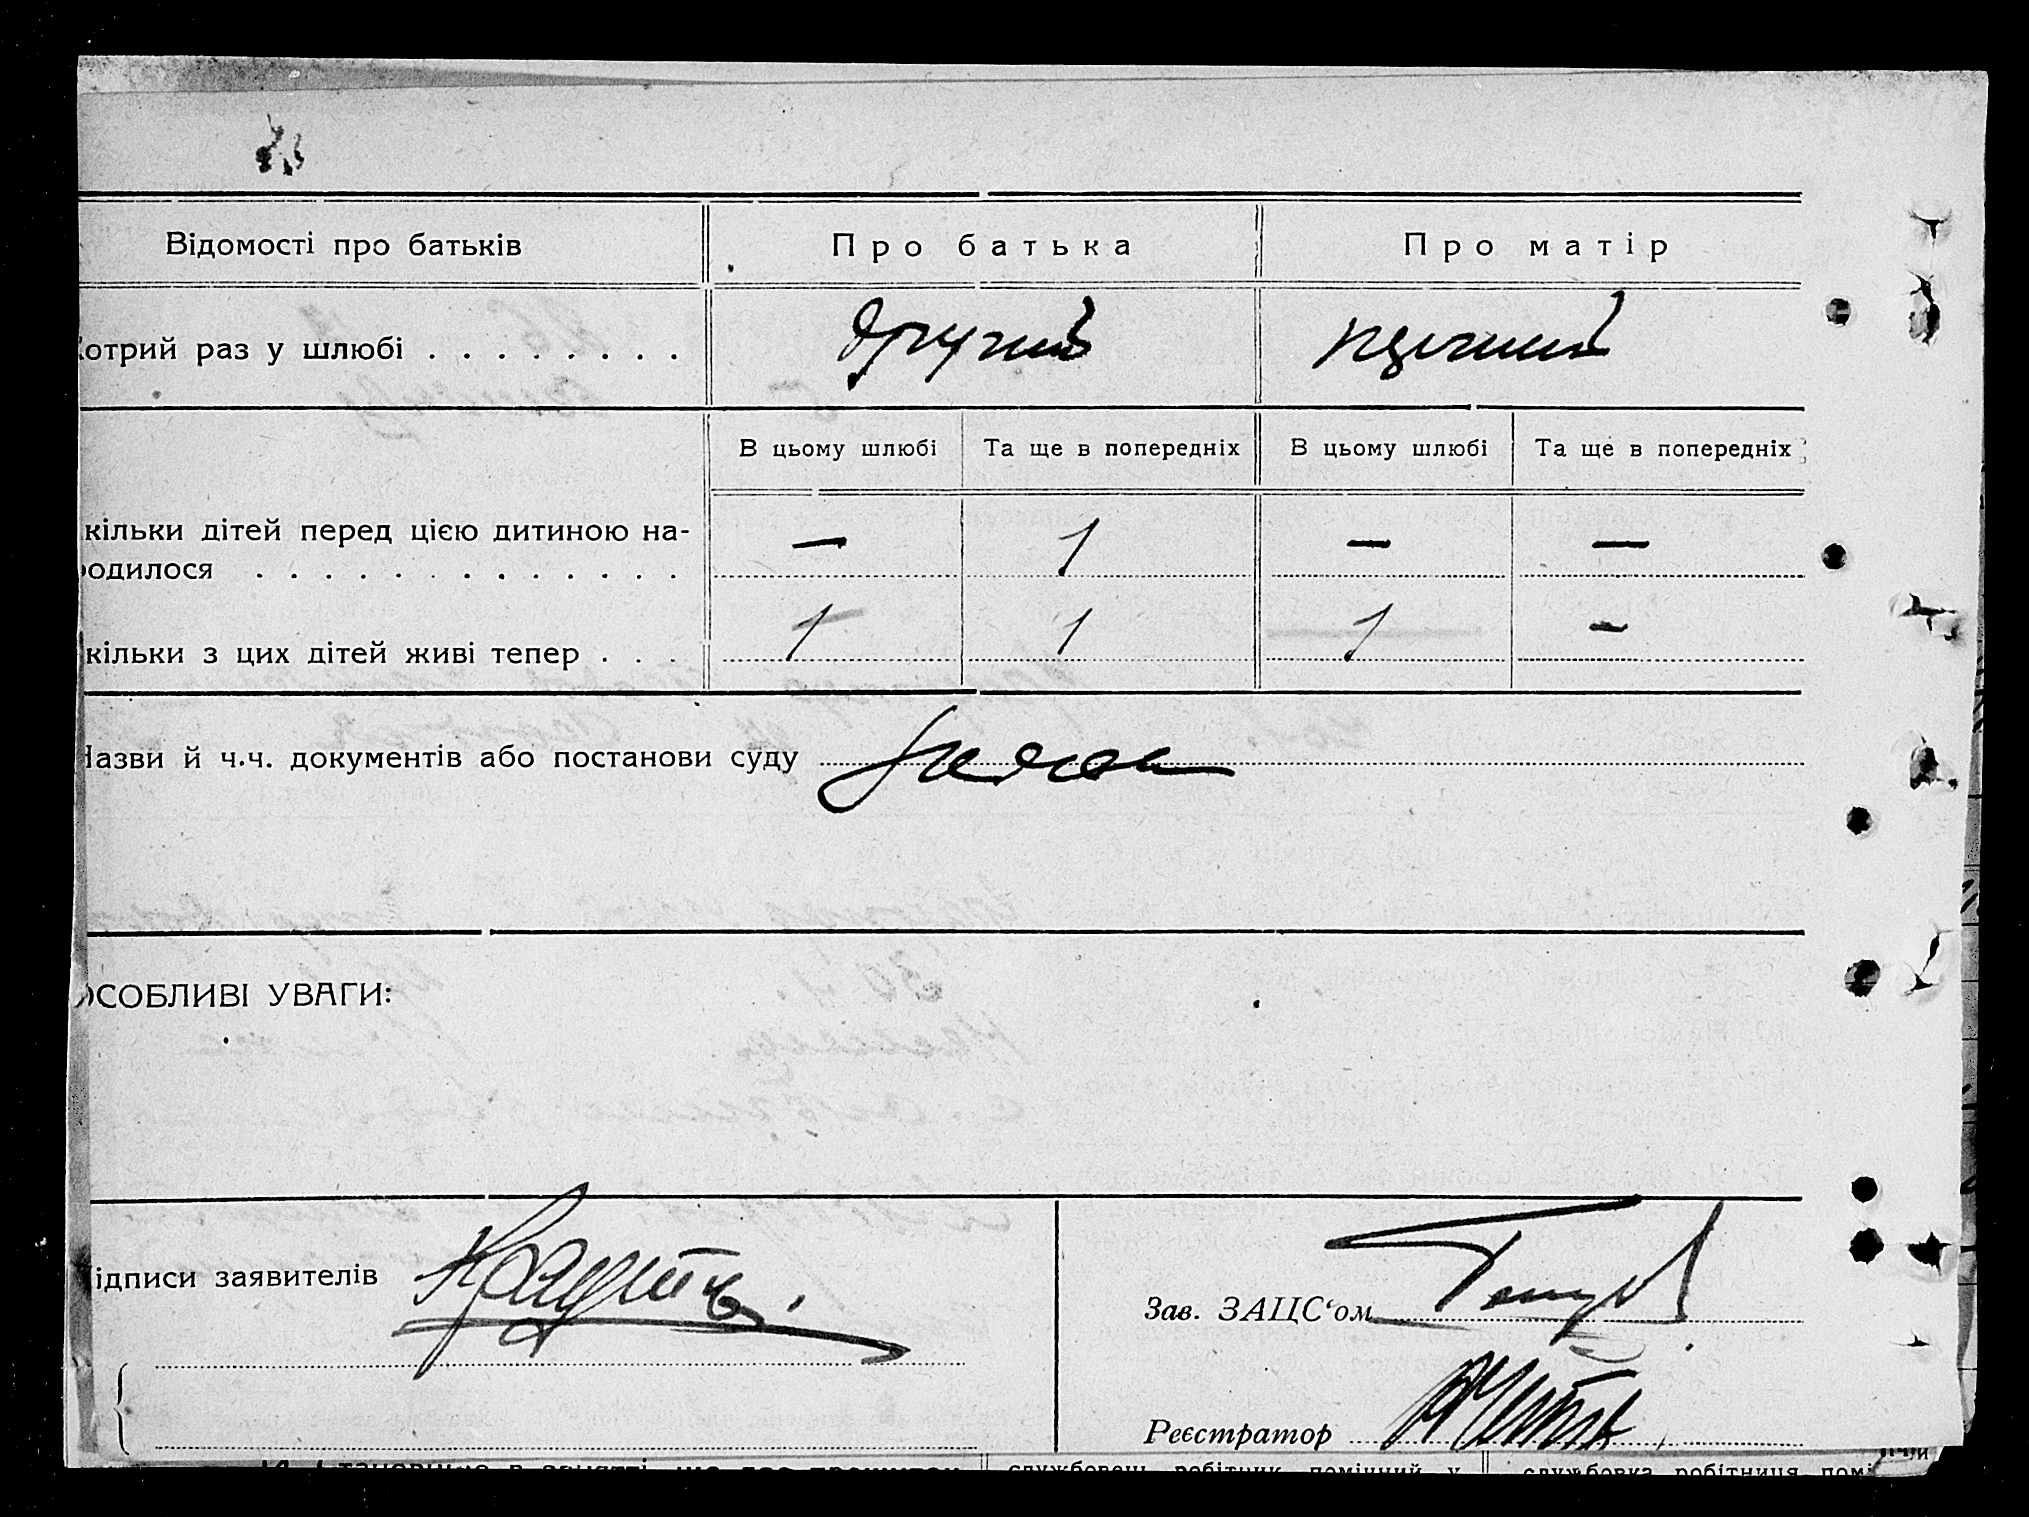 Відомості про батьків Про батька Про матір
Котрий раз у шлюбі . . . . . . . . другий перший
В цьому шлюбі Та ще в попередніх В цьому шлюбі Та ще в попередніх
кільки дітей перед цією дитиною на-
родилося . . . . . . . . . . . . . — 1 — —
кільки з цих дітей живі тепер . . . 1 1 1 —
Назви й ч.ч. документів або постанови суду
ОСОБЛИВІ УВАГИ:
ідписи заявителів
Зав. ЗАЦС‘ом
Реєстратор
службовець робітник помічний у службовка робітниця помі